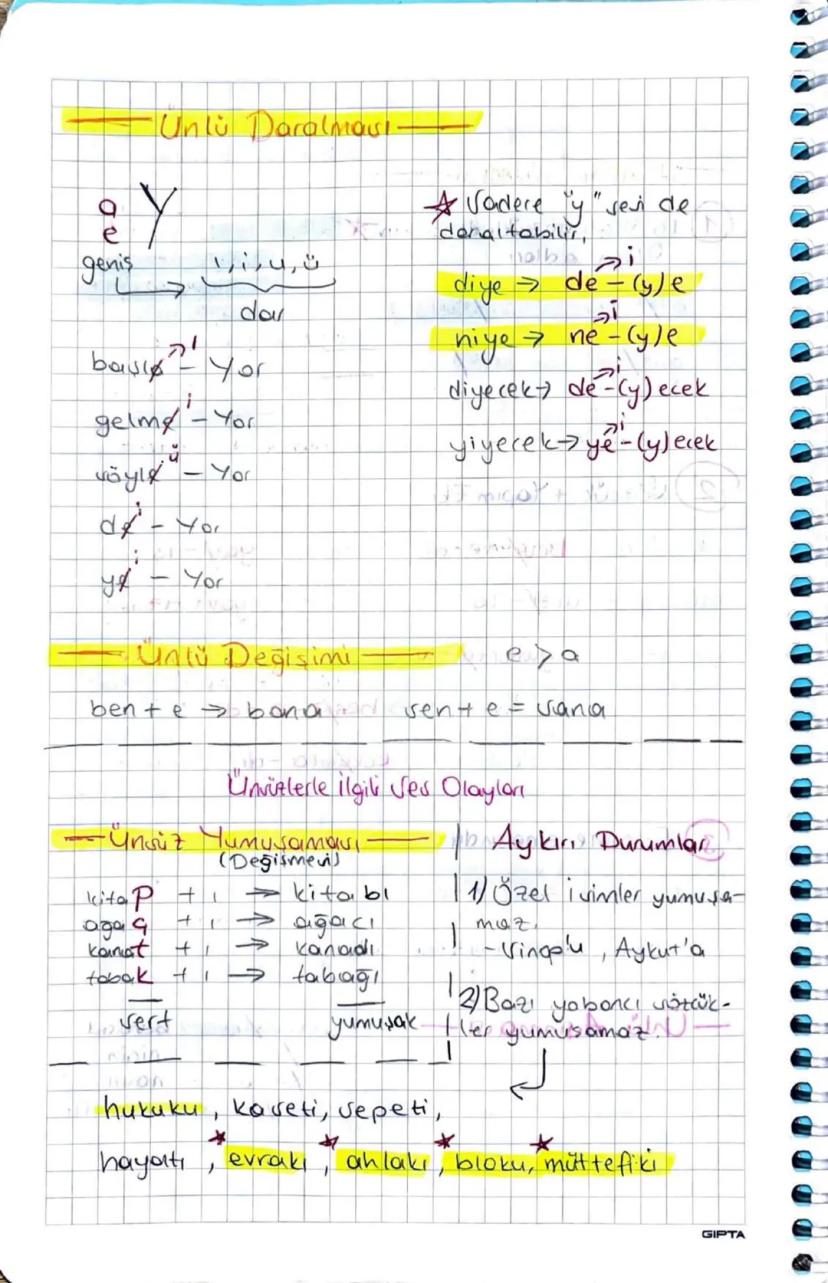 Ünlü Daralması
a
e
Y
geniş
ı, i, u, ü
dar
başla ı - Yor
gelme i - Yor
söyle ü - Yor
de i - Yor
ye i - Yor
☆ Sadece "y" sesi de
daraltabilir.
diye → de i - (y)e
niye → ne i - (y)e
diyecek → de i - (y)ecek
yiyecek → ye i - (y)ecek
Ünlü Değişimi e > a
ben + e → bana sen + e = sana
Ünsüzlerle İlgili Ses Olayları
Ünsüz Yumuşaması
(Değişmesi)
kitap + ı → kitabı
ağaç + ı → ağacı
kanat + ı → kanadı
tabak + ı → tabağı
sert yumuşak
Aykırı Durumlar
1) Özel isimler yumuşa-
maz.
- Sinop'u, Aykut'a
2) Bazı yabancı sözcük-
ler yumuşamaz.
hukuku, kaseti, sepeti,
hayatı, evrakı, ahlakı, bloku, müttefiki
GIPTA